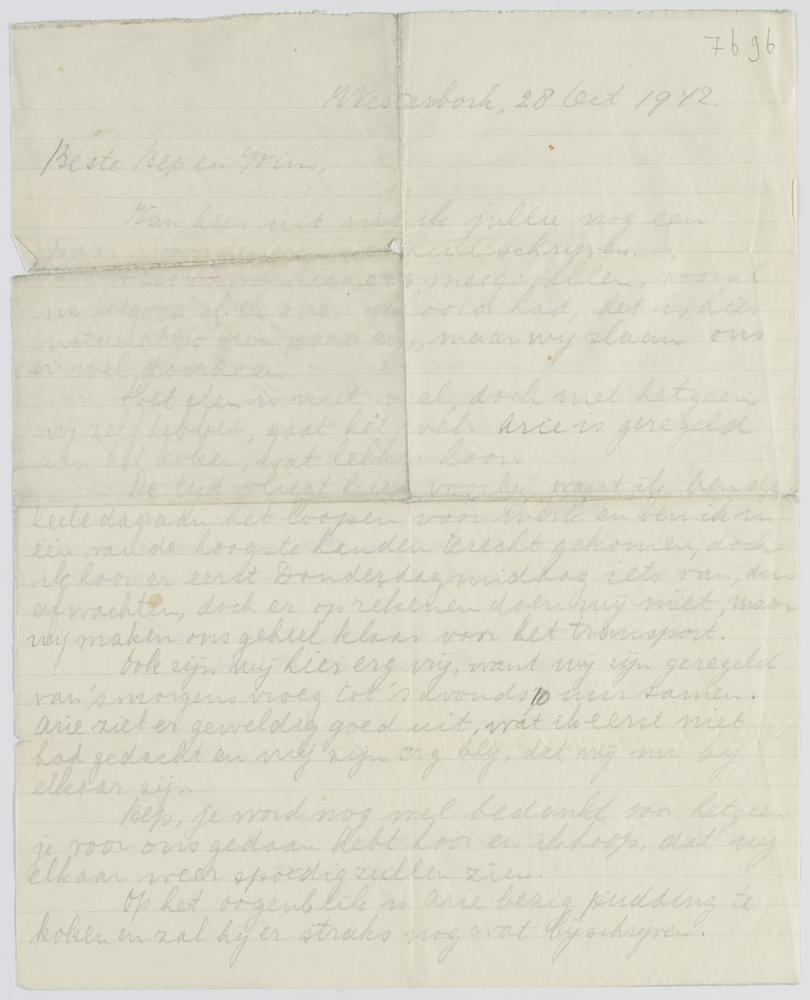 7696
Westerbork, 28 Oct 1942.
Beste Bep en Wim,
Van hier uit wil ik jullie nog een
paar schrijven.
meegevallen, vooral
had, het is hier
natuurlijk geen maar wij slaan ons
er wel doorheen.
Het eten is niet veel, doch met hetgeen
wij zelf hebben, gaat het wel. Arie is geregeld
aan het koken, wat lekker hoor.
De tijd vliegt hier voorbij, want ik ben de
heele dag aan het loopen voor werk en ben ik in
een van de hoogste handen terecht gekomen, doch
ik hoor er eerst Donderdagmiddag iets van, dus
afwachten, doch er op rekenen doen wij niet, maar
wij maken ons geheel klaar voor het transport.
Ook zijn wij hier erg vrij, want wij zijn geregeld
van 's morgens vroeg tot 's avonds 10 uur samen.
Arie ziet er geweldig goed uit, wat ik eerst niet
had gedacht en wij zijn erg blij, dat wij nu bij
elkaar zijn.
Bep, je word nog wel bedankt voor hetgeen
je voor ons gedaan hebt hoor en ik hoop, dat wij
elkaar weer spoedig zullen zien.
Op het oogenblik is Arie bezig pudding te
koken en zal hij er straks nog wat bijschrijven.